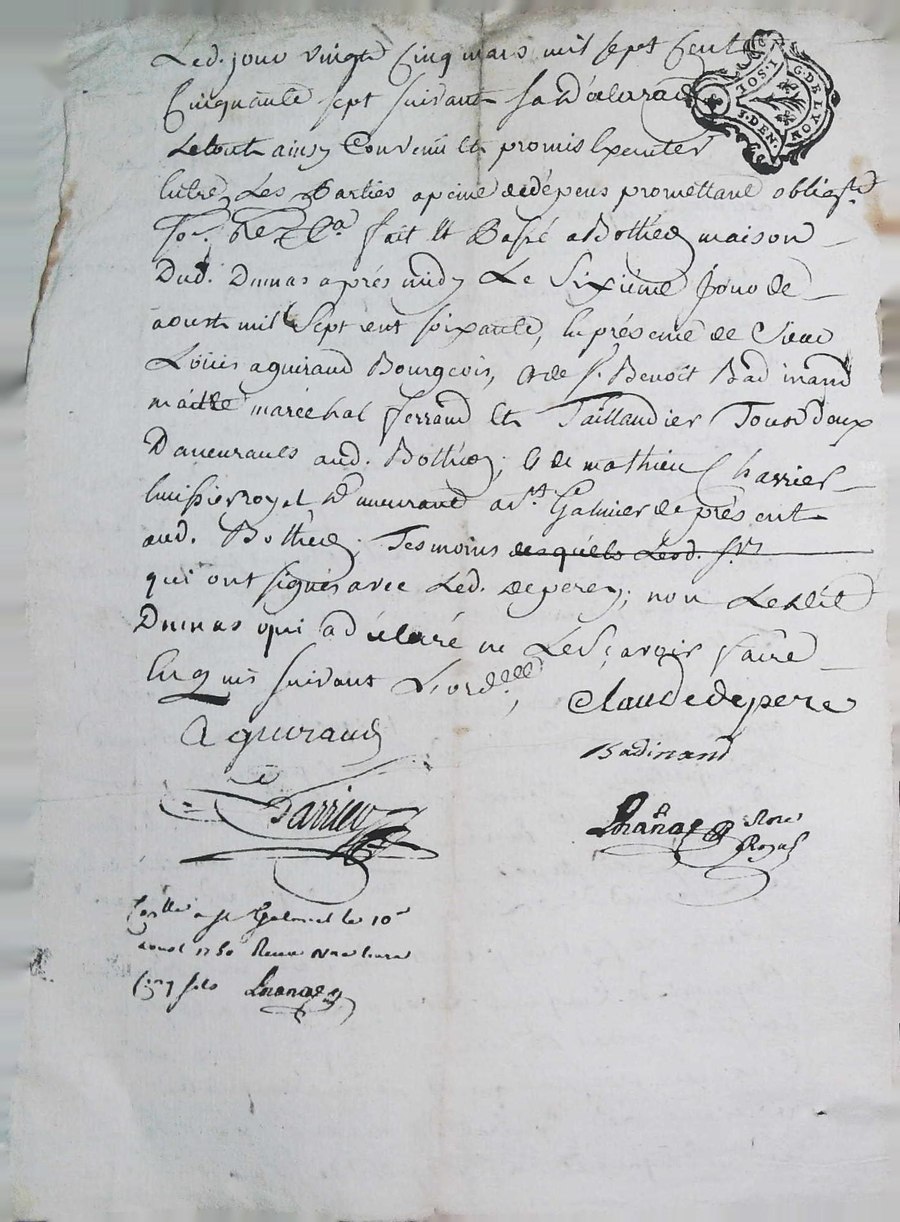 Led. jour vingt Cinq mars mil sept Cent
G. DE LYON
JOS. 1
S. DEN.
Cinquante sept suivant sa déclaraõn
Le tout ainsy Convenu et promis Executer
Entre Les Parties a peine de dépens promettant obligt.
Fait et Passé a Bothéon maison
Dud. Dumas après midy Le Sixième Jour de
aoust mil Sept cent soixante, En présence de Sieur
Louis aguiraud Bourgeois, & de Sr. Benoît Badinand
maitre maréchal ferrand et Taillandier Tous deux
Demeurants aud. Bothéon; & de mathieu Charrier
huissier royal Demeurant a St. Galmier de présent
aud. Bothéon; Tesmoins desquels Lesd. Srs
qui ont signés avec Led. deperey; non Ledit
Dumas qui a déclaré ne Le Sçavoir faire
Enquis suivant L'ord.
Claudedepere
Aguiraud
Badinand
Charrier
Nore
Royal
a St Galmier le 10e
aoust 1760 Receu
Cinq sols